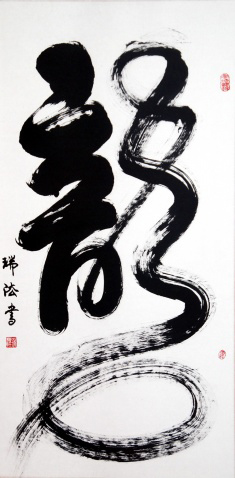 龍
瑞法書